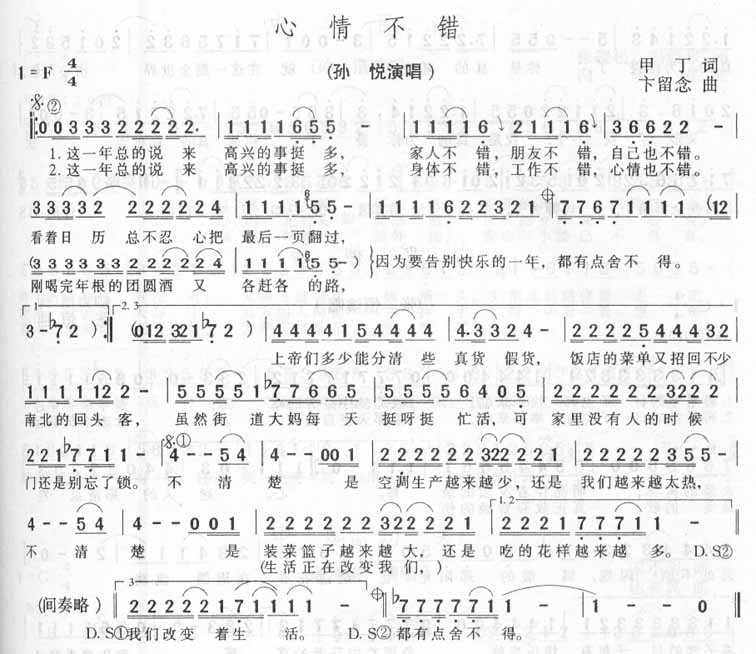 心 情 不 错
1 = F 4/4
(孙 悦演唱)
甲 丁 词
卞留念 曲
𝄋 ②
‖: 0 0 3 3 3 3 2 2 2 2 2. | 1 1 1 1 6 5 5 - | 1 1 1 1 6 2 1 1 1 1 6 | 3 6 6 2 2 - |
1.这一年总的说 来 高兴的事挺 多, 家人不 错,朋友不 错,自己也不错。
2.这一年总的说 来 高兴的事挺 多, 身体不 错,工作不 错,心情也不错。
看着日 历 总不忍 心把 最后一页翻过,
因为要告别快乐的一年,都有点舍不 得。
刚喝完年根的团圆酒 又 各赶各 的路,
1. 2. 3
3 - ♭7 2 ) :‖ (0 1 2 3 2 1 ♭7 2 ) | 4 4 4 4 1 5 4 4 4 4 | 4. 3 3 2 4 - | 2 2 2 2 5 4 4 4 3 2 |
上帝们多少能分清 些 真货 假货, 饭店的菜单又招回不少
南北的回头 客, 虽然街 道大妈每 天 挺呀挺 忙活,可 家里没有人的时候
𝄋 ①
2 2 1 ♭7 7 1 1 - | 4 - - 5 4 | 4 - - 0 0 1 | 2 2 2 2 2 2 3 2 2 2 1 | 2 2 2 2 2 3 5 5 - |
门还是别忘了锁。 不 清 楚 是 空调生产越来越少,还是 我们越来越太热,
1. 2
4 - - 5 4 | 4 - - 0 0 1 | 2 2 2 2 2 2 3 2 2 2 1 | 2 2 2 2 1 7 7 7 1 1 - |
不 清 楚 是 装菜篮子越来越 大,还是 吃的花样越来越 多。 D. S②
(生活正在改变我 们,)
3
(间奏略) | 2 2 2 2 2 1 7 1 1 1 1 - | ♭7 7 7 7 7 7 1 | 1 - - - | 1 - - 0 ‖
D. S①我们改变 着生 活。 D. S②都有点舍不 得。